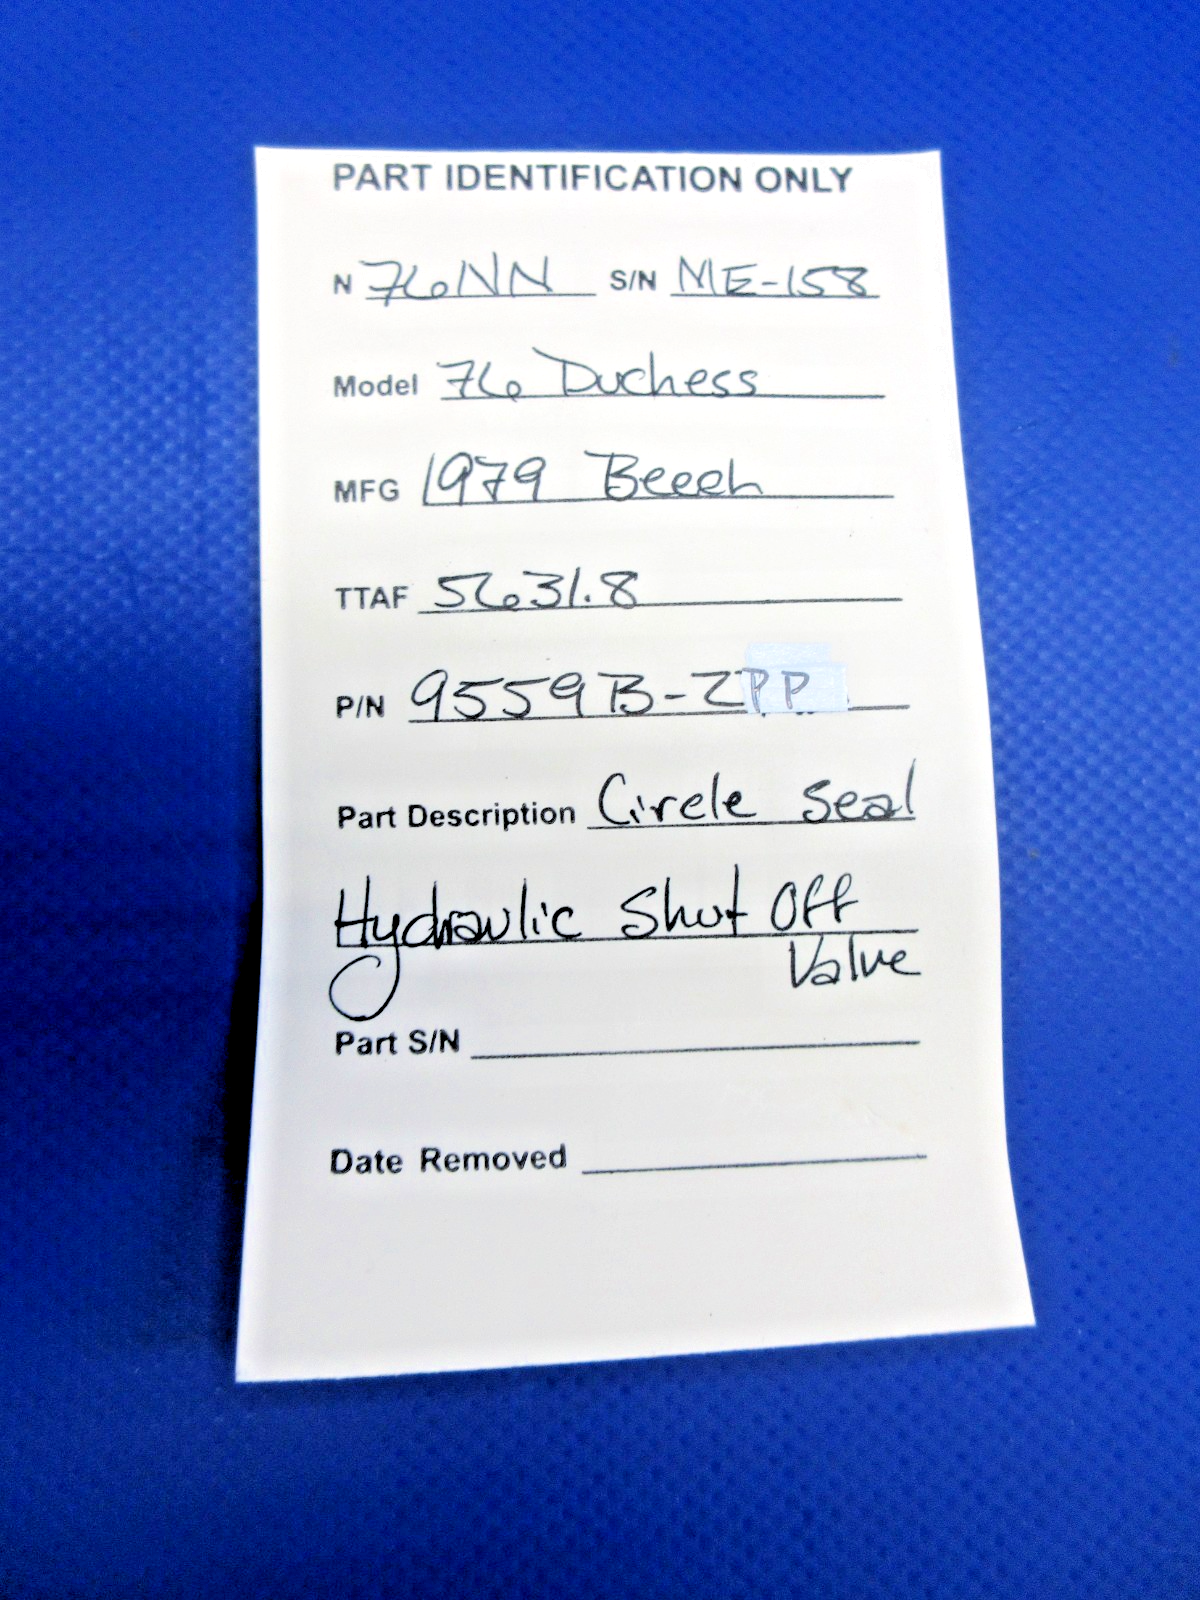 PART IDENTIFICATION ONLY
N 76NN S/N ME-158
Model 76 Duchess
MFG 1979 Beech
TTAF 5631.8
P/N 9559B-2PP
Part Description Circle Seal
Hydraulic Shut Off
Valve
Part S/N
Date Removed